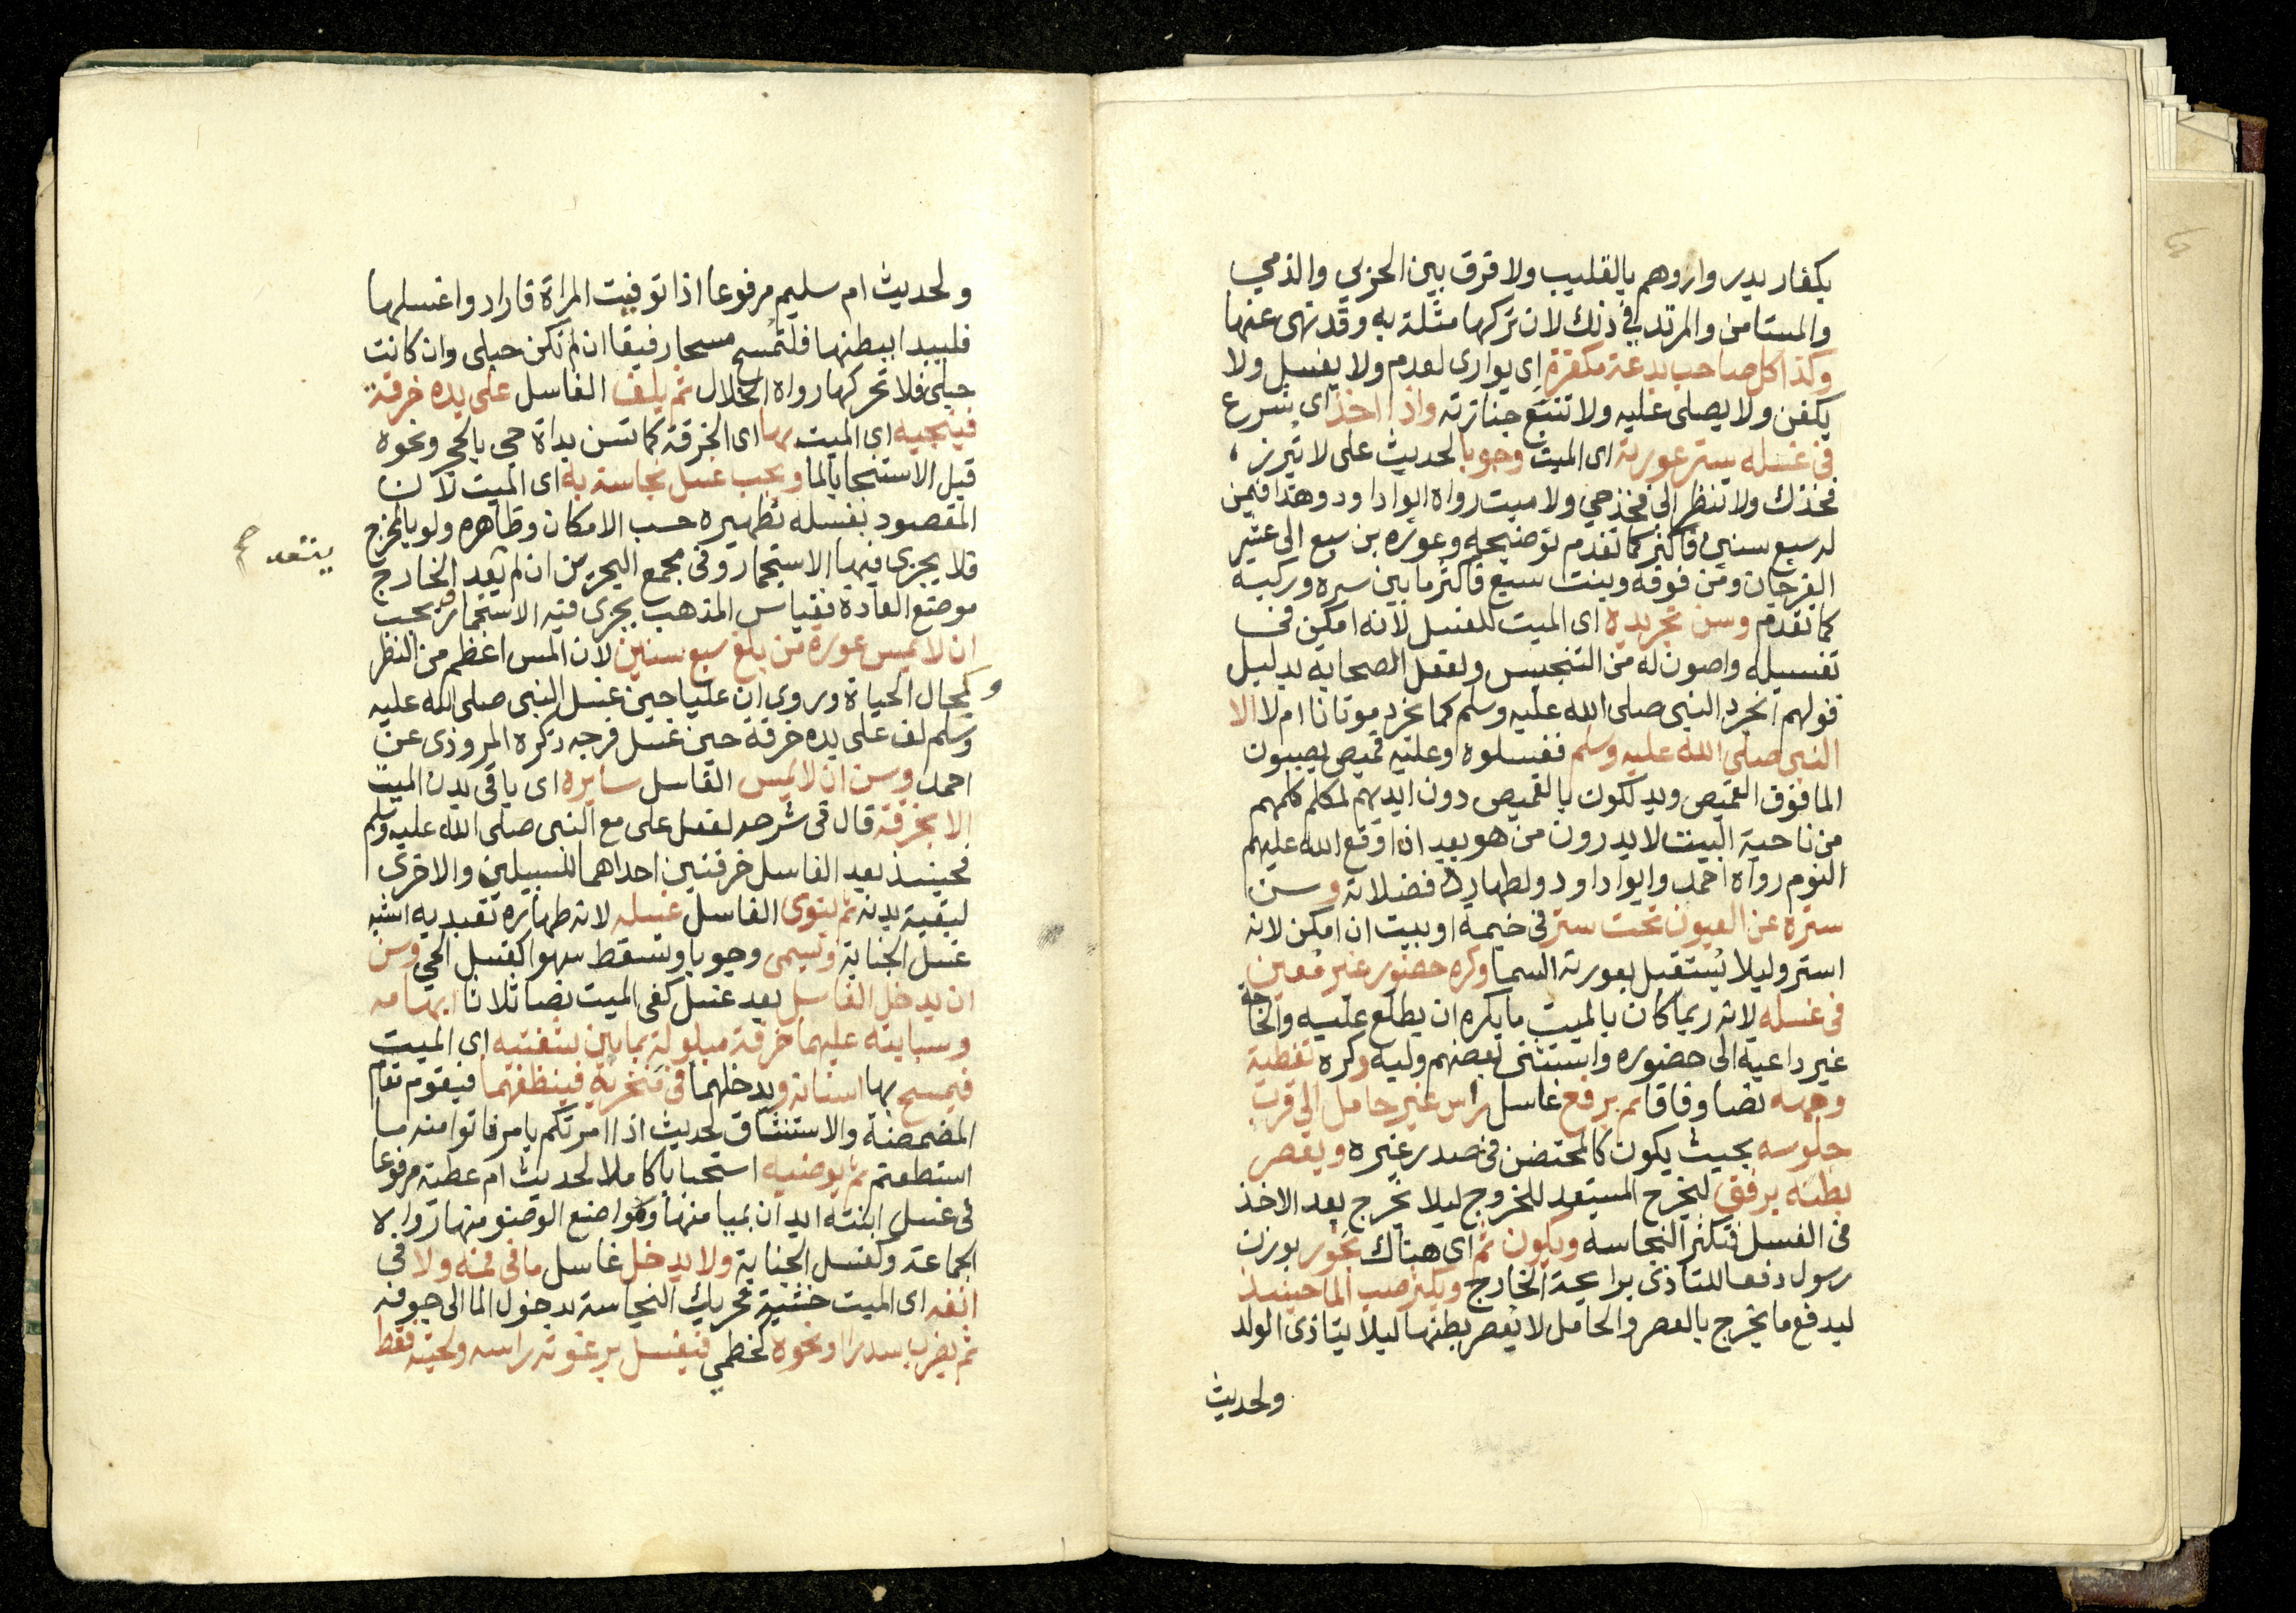 بكفار بدر واروهم بالقليب ولا فرق بين الحربي والذمي
والمستامن والمرتد في ذلك لان تركها مثلة به وقد نهى عنها
وكذا كل صاحب بدعة مكفرة اى يوارى لعدم ولا يغسل ولا
يكفن ولا يصلى عليه ولا تتبع جنازته واذا اخذ اى شرع
فى غسله ستر عورته اى الميت وجوبا لحديث على لا تبرز
فخذك ولا تنظر الى فخذ حي ولا ميت رواه ابوا داود وهذا فيمن
له سبع سنين فاكثر كما تقدم توضيحه وعورة بن سبع الى عشر
الفرجان ومن فوقه وبنت سبع فاكثر ما بين سره وركبه
كما تقدم وسن تجريده اى الميت للغسل لانه امكن فى
تغسيله واصون له من التنجيس ولفعل الصحابه بدليل
قولهم انجرد النبى صلى الله عليه وسلم كما نجرد موتانا ام لا الا
النبى صلى الله عليه وسلم فغسلوه وعليه قميص يصبون
الما فوق القميص ويدلكون بالقميص دون ايديهم لمكلم كلمهم
من ناحية البيت لا يدرون من هو بعد ان اوقع الله عليهم
النوم رواه احمد وابوا داود ولطهارة فضلاته وسن
ستره عن العيون تحت ستر فى خيمه او بيت ان امكن لانه
استر وليلا يستقبل بعورته السما وكره حضور غير معين
فى غسله لانه ربما كان بالميت ما يكره ان يطلع عليه والحاجة
غير داعية الى حضوره واستثنى بعضهم وليه وكره تغطية
وجهه نصا وفاقا ثم يرفع غاسل راس غير حامل الى قرب
جلوسه بحيث يكون كالمحتضن فى صدر غيره ويعصر
بطنه برفق ليخرج المستعد للخروج ليلا يخرج بعد الاخذ
فى الغسل فتكثر النجاسه ويكون ثم اى هناك بخور بوزن
رسول دفعا للتاذى برايحة الخارج ويكثر صب الما حينيذ
ليدفع ما يخرج بالعصر والحامل لا يعصر بطنها ليلا يتاذى الولد
ولحديث
ولحديث ام سليم مرفوعا اذا توفيت المراة فارادوا غسلها
فليبدا ببطنها فلتمسح مسحا رفيقا ان لم تكن حبلى وان كانت
حبلى فلا تحركها رواه الخلال ثم يلف الغاسل على يده خرقة
فينجيه اى الميت بها اى الخرقة كما تسن بداة حي بالحجر ونحوه
قبل الاستنجا بالما ويجب غسل نجاسة به اى الميت لان
المقصود بغسله تطهيره حسب الامكان وظاهره ولو بالمخرج
فلا يجزى فيها الاستجمار وفى مجمع البحرين ان لم تعد الخارج
يتعد صح
موضع العادة فقياس المذهب يجزى فيه الاستجمار ويجب
ان لا يمس عورة من بلغ سبع سنين لان المس اعظم من النظر
وكحال الحياة وروى ان عليا حين غسل النبى صلى الله عليه
وسلم لف على يده خرقة حين غسل فرجه ذكره المروذى عن
احمد وسن ان لا يمس الغاسل سايره اى باقى بدن الميت
الا بخرقة قال فى شرحه لفعل على مع النبى صلى الله عليه وسلم
فحينيذ يعد الغاسل خرقتين احداهما للسبيلين والاخرى
لبقية بدنه ثم ينوى الغاسل غسله لانه طهارة تعبديه اشبه
غسل الجنابة وتسمى وجوبا وتسقط سهوا كغسل الحي وسن
ان يدخل الغاسل بعد غسل كفى الميت نصا ثلاثا ابهامه
وسبابته عليهما خرقة مبلولة بما بين شفتيه اى الميت
فيمسح بها اسنانه ويدخلهما فى منخريه فينظفهما فيقوم مقام
المضمضة والاستنشاق لحديث اذا امرتكم بامر فاتوا منه ما
استطعتم ثم يوضيه استحبابا كاملا لحديث ام عطية مرفوعا
فى غسل ابنته ابدان بميامنها ومواضع الوضو منها رواه
الجماعة وكغسل الجنابة ولا يدخل غاسل ما فى فمه ولا فى
انفه اى الميت خشية تحريك النجاسة بدخول الما الى جوفه
ثم يضرب سدرا ونحوه كخطمي فيغسل برغوته راسه ولحيته فقط